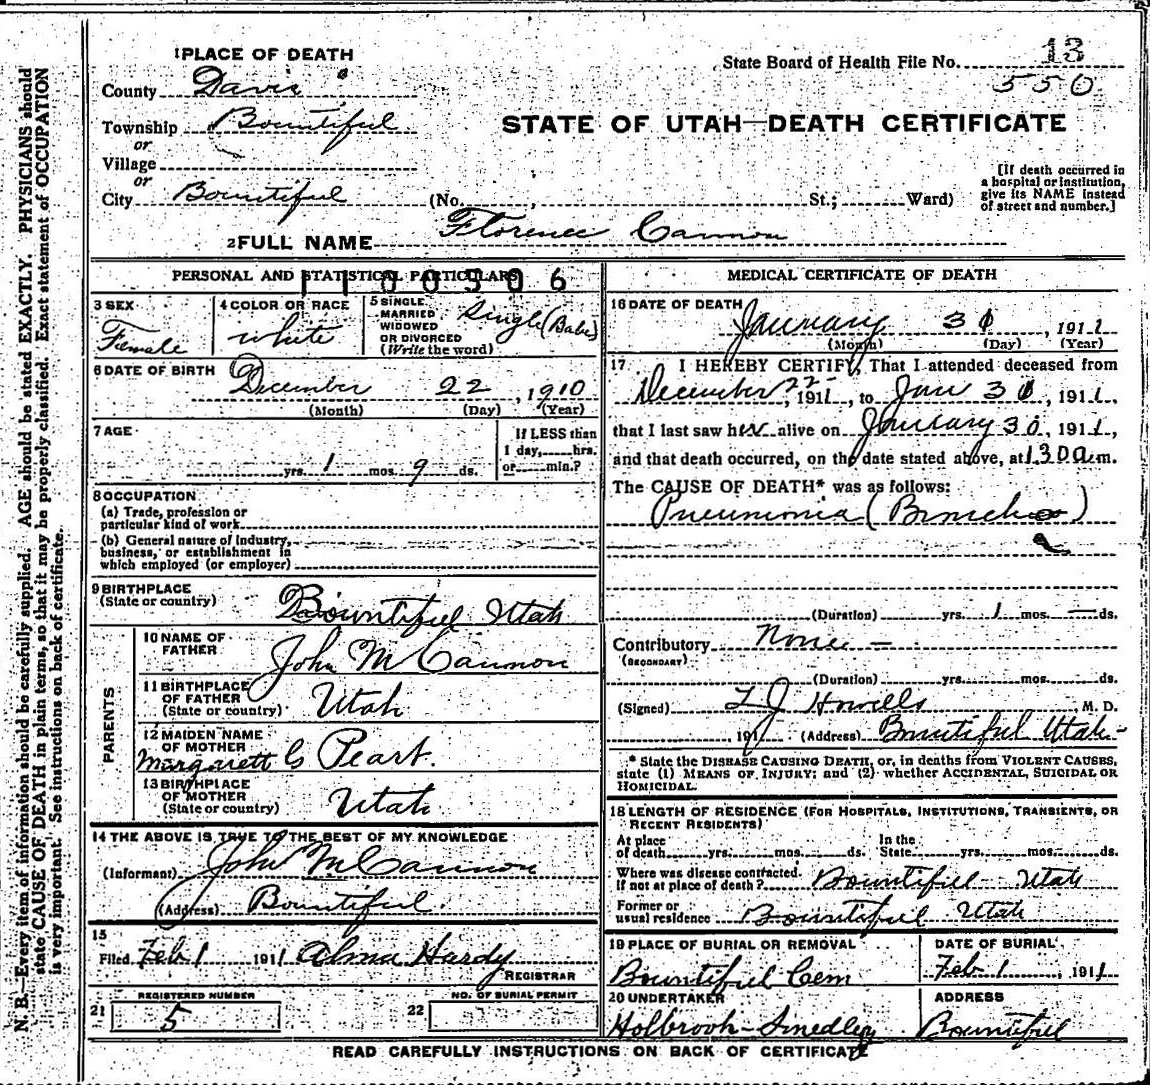 1 PLACE OF DEATH
County Davis
Township Bountiful
or
Village
or
City Bountiful (No. , St.; Ward)
State Board of Health File No. 13
550
STATE OF UTAH—DEATH CERTIFICATE
[If death occurred in
a hospital or institution,
give its NAME instead
of street and number.]
2 FULL NAME Florence Cannon
PERSONAL AND STATISTICAL PARTICULARS
1100506
3 SEX
Female
4 COLOR OR RACE
white
5 SINGLE
MARRIED
WIDOWED
OR DIVORCED
(Write the word)
Single (Babe)
6 DATE OF BIRTH December 22, 1910
(Month) (Day) (Year)
7 AGE
yrs. 1 mos. 9 ds.
If LESS than
1 day, hrs.
or min.?
8 OCCUPATION
(a) Trade, profession or
particular kind of work
(b) General nature of industry,
business, or establishment in
which employed (or employer)
9 BIRTHPLACE
(State or country) Bountiful Utah
PARENTS
10 NAME OF
FATHER John M Cannon
11 BIRTHPLACE
OF FATHER
(State or country) Utah
12 MAIDEN NAME
OF MOTHER
Margarett C Peart.
13 BIRTHPLACE
OF MOTHER
(State or country) Utah
14 THE ABOVE IS TRUE TO THE BEST OF MY KNOWLEDGE
(Informant) John M Cannon
(Address) Bountiful.
15
Filed Feb 1 1911 Alma Hardy
REGISTRAR
REGISTERED NUMBER
21 5
NO. OF BURIAL PERMIT
22
MEDICAL CERTIFICATE OF DEATH
16 DATE OF DEATH January 30, 1911
(Month) (Day) (Year)
17 I HEREBY CERTIFY, That I attended deceased from
December 22-, 1911, to Jan 30, 1911,
that I last saw her alive on January 30, 1911,
and that death occurred, on the date stated above, at 1.30 a.m.
The CAUSE OF DEATH* was as follows:
Pneumonia (Broncho)
(Duration) yrs. 1 mos. — ds.
Contributory None —
(SECONDARY)
(Duration) yrs. mos. ds.
(Signed) L J Howells, M. D.
191 (Address) Bountiful Utah-
* State the DISEASE CAUSING DEATH, or, in deaths from VIOLENT CAUSES,
state (1) MEANS OF INJURY; and (2) whether ACCIDENTAL, SUICIDAL OR
HOMICIDAL.
18 LENGTH OF RESIDENCE (FOR HOSPITALS, INSTITUTIONS, TRANSIENTS, OR
RECENT RESIDENTS)
At place
of death yrs. mos. ds.
In the
State yrs. mos. ds.
Where was disease contracted.
If not at place of death? Bountiful Utah
Former or
usual residence Bountiful Utah
19 PLACE OF BURIAL OR REMOVAL
Bountiful Cem
DATE OF BURIAL
Feb 1, 1911
20 UNDERTAKER
Holbrook-Smedley
ADDRESS
Bountiful
READ CAREFULLY INSTRUCTIONS ON BACK OF CERTIFICATE
N. B.—Every item of information should be carefully supplied. AGE should be stated EXACTLY. PHYSICIANS should
state CAUSE OF DEATH in plain terms, so that it may be properly classified. Exact statement of OCCUPATION
is very important. See instructions on back of certificate.